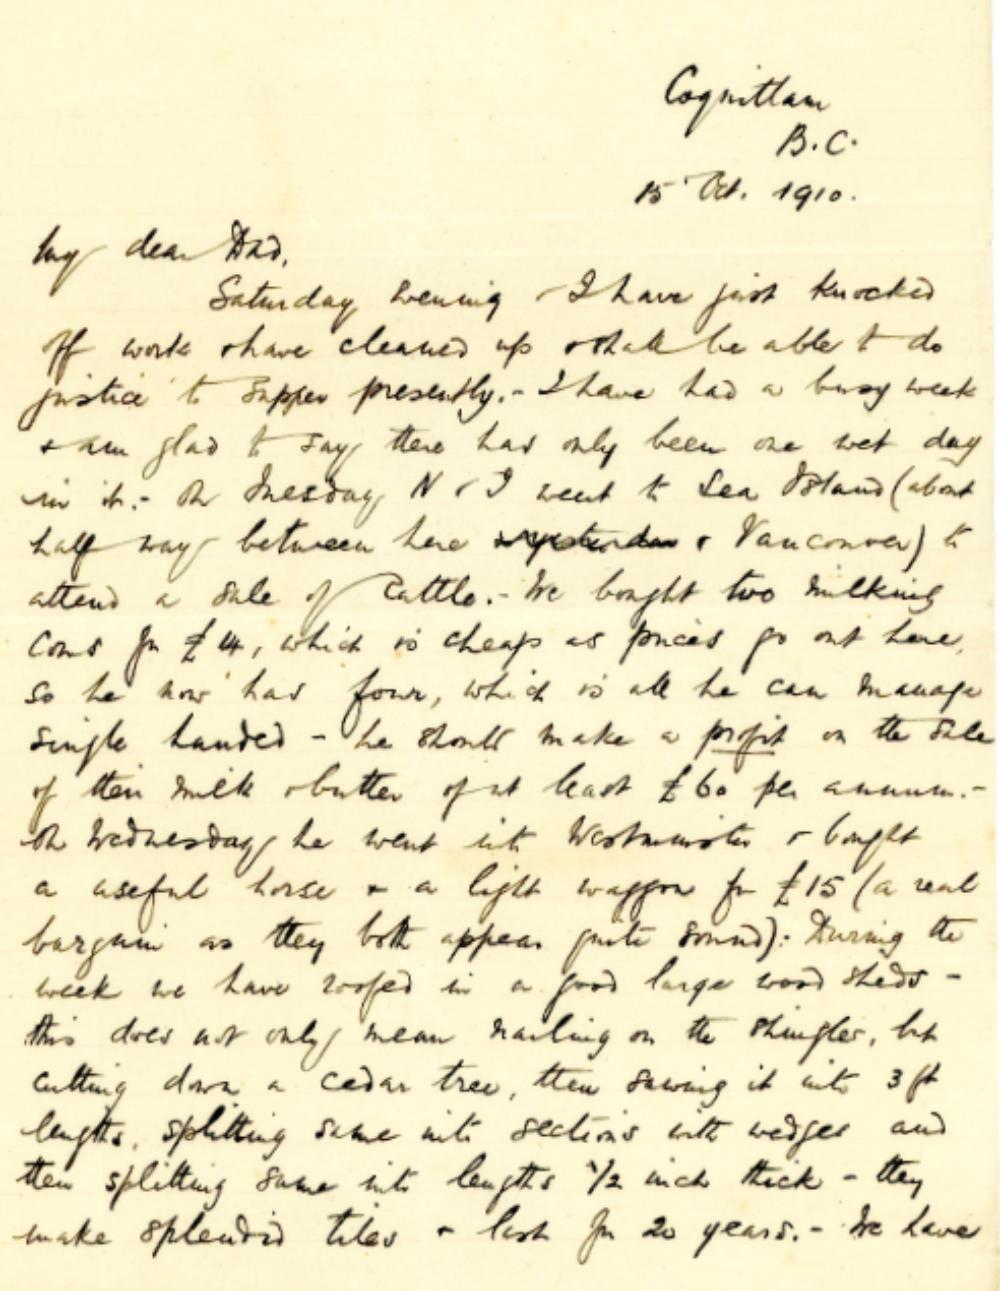 Coquitlam
B.C.
15 Oct. 1910.
My dear Dad,
Saturday evening & I have just knocked
off work & have cleaned up & shall be able to do
justice to supper presently. - I have had a busy week
& am glad to say there has only been one wet day
in it. - On Tuesday N & I went to Sea Island (about
half way between here & Vancouver) to
attend a sale of Cattle. - We bought two milking
Cows for £14, which is cheap as prices go out here,
so he now has four, which is all he can manage
single handed - he should make a profit on the sale
of their milk & butter of at least £60 per annum. -
On Wednesday he went into Westminster & bought
a useful horse & a light waggon for £15 (a real
bargain as they both appear quite sound). During the
week we have roofed in a good large wood sheds -
this does not only mean nailing on the shingles, but
cutting down a cedar tree, then sawing it into 3 ft
lengths, splitting same into sections with wedges and
then splitting same into lengths 1/2 inch thick - they
make splendid tiles & last for 20 years. - We have